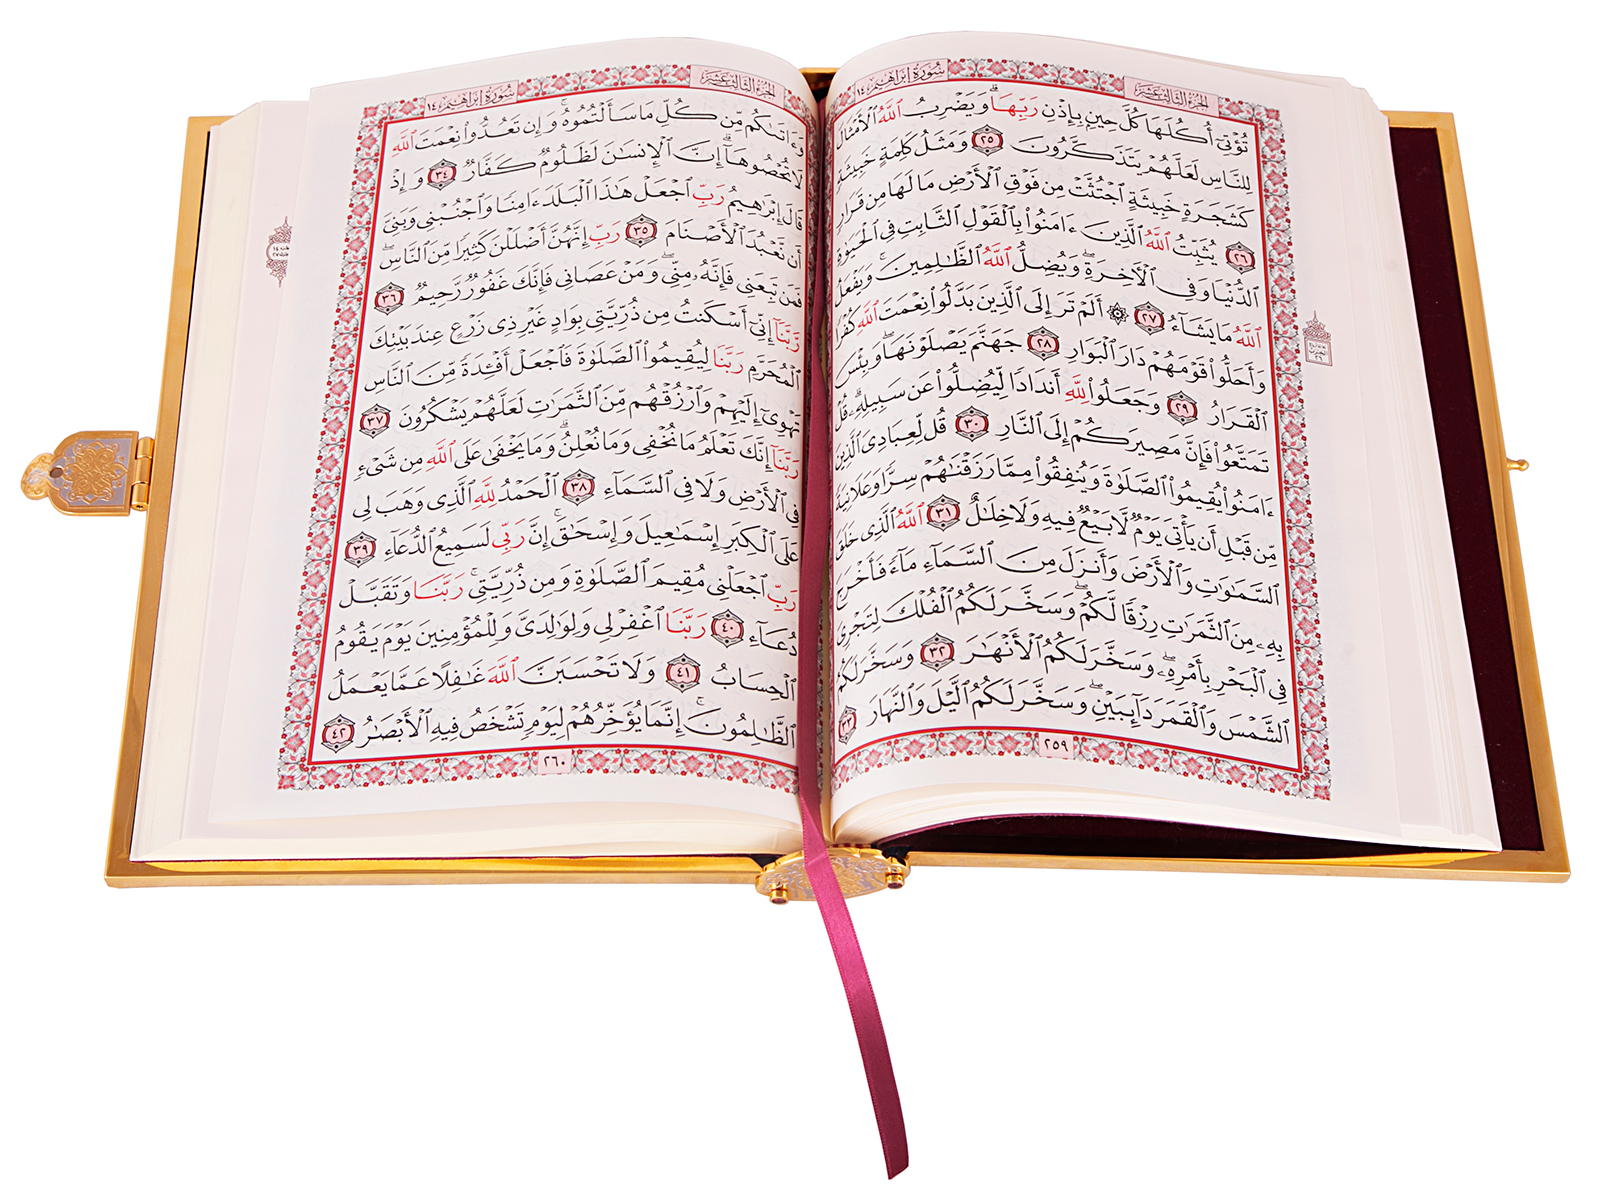 سُورَةُ إِبْرَاهِيم ١٤
الجُزءُ الثَّالِثَ عَشَرَ
تُؤْتِىٓ أُكُلَهَا كُلَّ حِينٍۭ بِإِذْنِ رَبِّهَا ۗ وَيَضْرِبُ ٱللَّهُ ٱلْأَمْثَالَ
لِلنَّاسِ لَعَلَّهُمْ يَتَذَكَّرُونَ ٢٥ وَمَثَلُ كَلِمَةٍ خَبِيثَةٍ
كَشَجَرَةٍ خَبِيثَةٍ ٱجْتُثَّتْ مِن فَوْقِ ٱلْأَرْضِ مَا لَهَا مِن قَرَارٍ
٢٦ يُثَبِّتُ ٱللَّهُ ٱلَّذِينَ ءَامَنُوا۟ بِٱلْقَوْلِ ٱلثَّابِتِ فِى ٱلْحَيَوٰةِ
ٱلدُّنْيَا وَفِى ٱلْءَاخِرَةِ ۖ وَيُضِلُّ ٱللَّهُ ٱلظَّٰلِمِينَ ۚ وَيَفْعَلُ
ٱللَّهُ مَا يَشَآءُ ٢٧ ۞ أَلَمْ تَرَ إِلَى ٱلَّذِينَ بَدَّلُوا۟ نِعْمَتَ ٱللَّهِ كُفْرًا
وَأَحَلُّوا۟ قَوْمَهُمْ دَارَ ٱلْبَوَارِ ٢٨ جَهَنَّمَ يَصْلَوْنَهَا ۖ وَبِئْسَ
ٱلْقَرَارُ ٢٩ وَجَعَلُوا۟ لِلَّهِ أَندَادًا لِّيُضِلُّوا۟ عَن سَبِيلِهِۦ ۗ قُلْ
تَمَتَّعُوا۟ فَإِنَّ مَصِيرَكُمْ إِلَى ٱلنَّارِ ٣٠ قُل لِّعِبَادِىَ ٱلَّذِينَ
ءَامَنُوا۟ يُقِيمُوا۟ ٱلصَّلَوٰةَ وَيُنفِقُوا۟ مِمَّا رَزَقْنَٰهُمْ سِرًّا وَعَلَانِيَةً
مِّن قَبْلِ أَن يَأْتِىَ يَوْمٌ لَّا بَيْعٌ فِيهِ وَلَا خِلَٰلٌ ٣١ ٱللَّهُ ٱلَّذِى خَلَقَ
ٱلسَّمَٰوَٰتِ وَٱلْأَرْضَ وَأَنزَلَ مِنَ ٱلسَّمَآءِ مَآءً فَأَخْرَجَ
بِهِۦ مِنَ ٱلثَّمَرَٰتِ رِزْقًا لَّكُمْ ۖ وَسَخَّرَ لَكُمُ ٱلْفُلْكَ لِتَجْرِىَ
فِى ٱلْبَحْرِ بِأَمْرِهِۦ ۖ وَسَخَّرَ لَكُمُ ٱلْأَنْهَٰرَ ٣٢ وَسَخَّرَ لَكُمُ
ٱلشَّمْسَ وَٱلْقَمَرَ دَآئِبَيْنِ ۖ وَسَخَّرَ لَكُمُ ٱلَّيْلَ وَٱلنَّهَارَ ٣٣
٢٥٩
الجُزءُ الثَّالِثَ عَشَرَ
سُورَةُ إِبْرَاهِيم ١٤
وَءَاتَىٰكُم مِّن كُلِّ مَا سَأَلْتُمُوهُ ۚ وَإِن تَعُدُّوا۟ نِعْمَتَ ٱللَّهِ
لَا تُحْصُوهَآ ۗ إِنَّ ٱلْإِنسَٰنَ لَظَلُومٌ كَفَّارٌ ٣٤ وَإِذْ
قَالَ إِبْرَٰهِيمُ رَبِّ ٱجْعَلْ هَٰذَا ٱلْبَلَدَ ءَامِنًا وَٱجْنُبْنِى وَبَنِىَّ
أَن نَّعْبُدَ ٱلْأَصْنَامَ ٣٥ رَبِّ إِنَّهُنَّ أَضْلَلْنَ كَثِيرًا مِّنَ ٱلنَّاسِ ۖ
فَمَن تَبِعَنِى فَإِنَّهُۥ مِنِّى ۖ وَمَنْ عَصَانِى فَإِنَّكَ غَفُورٌ رَّحِيمٌ ٣٦
رَّبَّنَآ إِنِّىٓ أَسْكَنتُ مِن ذُرِّيَّتِى بِوَادٍ غَيْرِ ذِى زَرْعٍ عِندَ بَيْتِكَ
ٱلْمُحَرَّمِ رَبَّنَا لِيُقِيمُوا۟ ٱلصَّلَوٰةَ فَٱجْعَلْ أَفْـِٔدَةً مِّنَ ٱلنَّاسِ
تَهْوِىٓ إِلَيْهِمْ وَٱرْزُقْهُم مِّنَ ٱلثَّمَرَٰتِ لَعَلَّهُمْ يَشْكُرُونَ ٣٧
رَبَّنَآ إِنَّكَ تَعْلَمُ مَا نُخْفِى وَمَا نُعْلِنُ ۗ وَمَا يَخْفَىٰ عَلَى ٱللَّهِ مِن شَىْءٍ
فِى ٱلْأَرْضِ وَلَا فِى ٱلسَّمَآءِ ٣٨ ٱلْحَمْدُ لِلَّهِ ٱلَّذِى وَهَبَ لِى
عَلَى ٱلْكِبَرِ إِسْمَٰعِيلَ وَإِسْحَٰقَ ۚ إِنَّ رَبِّى لَسَمِيعُ ٱلدُّعَآءِ ٣٩
رَبِّ ٱجْعَلْنِى مُقِيمَ ٱلصَّلَوٰةِ وَمِن ذُرِّيَّتِى ۚ رَبَّنَا وَتَقَبَّلْ
دُعَآءِ ٤٠ رَبَّنَا ٱغْفِرْ لِى وَلِوَٰلِدَىَّ وَلِلْمُؤْمِنِينَ يَوْمَ يَقُومُ
ٱلْحِسَابُ ٤١ وَلَا تَحْسَبَنَّ ٱللَّهَ غَٰفِلًا عَمَّا يَعْمَلُ
ٱلظَّٰلِمُونَ ۚ إِنَّمَا يُؤَخِّرُهُمْ لِيَوْمٍ تَشْخَصُ فِيهِ ٱلْأَبْصَٰرُ ٤٢
٢٦٠